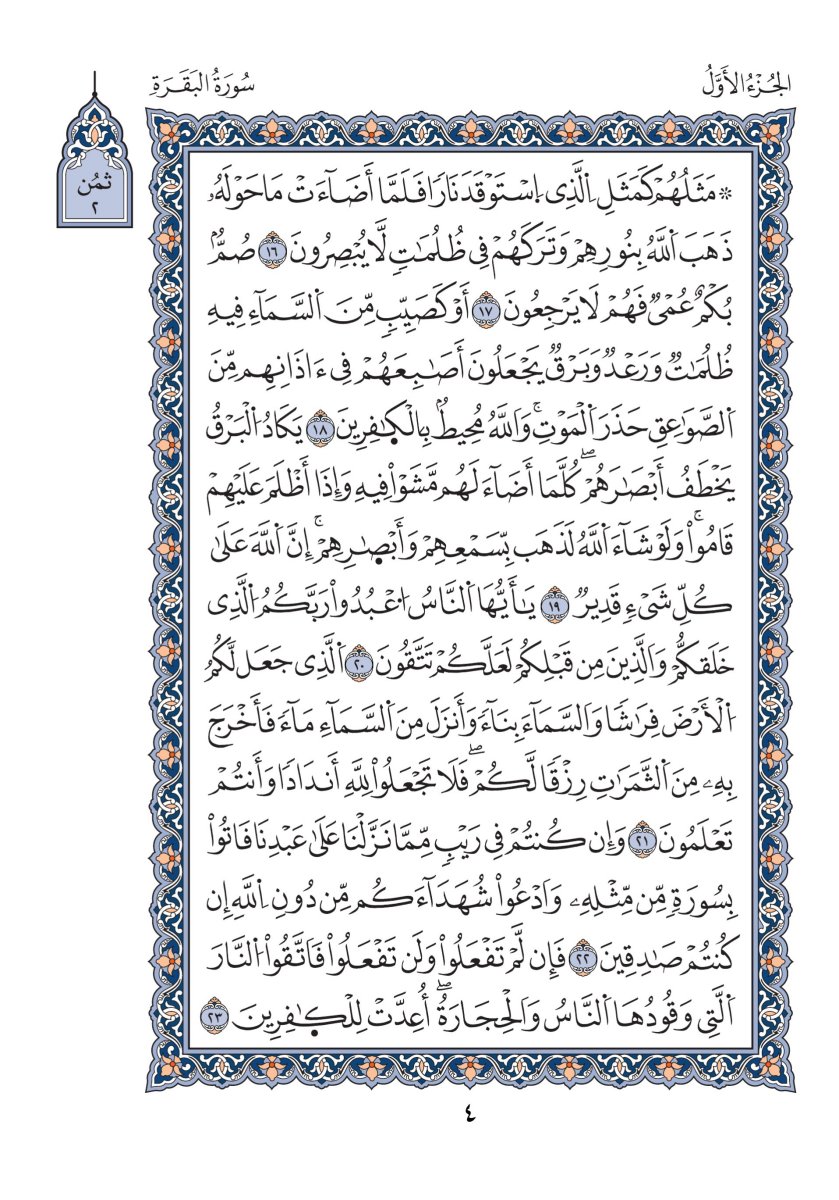 الجُزْءُ الأَوَّلُ
سُورَةُ البَقَرَةِ
ثمُن
٢
۞ مَثَلُهُمْ كَمَثَلِ اِ۬لذِے اِ۪سْتَوْقَدَ نَاراٗ فَلَمَّآ أَضَآءَتْ مَا حَوْلَهُۥ
ذَهَبَ اَ۬للَّهُ بِنُورِهِمْ وَتَرَكَهُمْ فِے ظُلُمَٰتٖ لَّا يُبْصِرُونَ ١٦ صُمُّۢ
بُكْمٌ عُمْيٞ فَهُمْ لَا يَرْجِعُونَ ١٧ أَوْ كَصَيِّبٖ مِّنَ اَ۬لسَّمَآءِ فِيهِ
ظُلُمَٰتٞ وَرَعْدٞ وَبَرْقٞ يَجْعَلُونَ أَصَٰبِعَهُمْ فِےٓ ءَاذَانِهِم مِّنَ
اَ۬لصَّوَٰعِقِ حَذَرَ اَ۬لْمَوْتِۚ وَاللَّهُ مُحِيطُۢ بِالْكٰ۪فِرِينَ ١٨ يَكَادُ اُ۬لْبَرْقُ
يَخْطَفُ أَبْصَٰرَهُمْۖ كُلَّمَآ أَضَآءَ لَهُم مَّشَوْاْ فِيهِ وَإِذَآ أَظْلَمَ عَلَيْهِمْ
قَامُواْۚ وَلَوْ شَآءَ اَ۬للَّهُ لَذَهَب بِّسَمْعِهِمْ وَأَبْصٰ۪رِهِمْۚ إِنَّ اَ۬للَّهَ عَلَىٰ
كُلِّ شَےْءٖ قَدِيرٞ ١٩ يَٰٓأَيُّهَا اَ۬لنَّاسُ اُ۟عْبُدُواْ رَبَّكُمُ اُ۬لذِے
خَلَقكُّمْ وَالَّذِينَ مِن قَبْلِكُمْ لَعَلَّكُمْ تَتَّقُونَ ٢٠ اَ۬لذِے جَعَل لَّكُمُ
اُ۬لْأَرْضَ فِرَٰشاٗ وَالسَّمَآءَ بِنَآءٗ وَأَنزَلَ مِنَ اَ۬لسَّمَآءِ مَآءٗ فَأَخْرَجَ
بِهِۦ مِنَ اَ۬لثَّمَرَٰتِ رِزْقاٗ لَّكُمْۖ فَلَا تَجْعَلُواْ لِلهِ أَندَاداٗ وَأَنتُمْ
تَعْلَمُونَ ٢١ وَإِن كُنتُمْ فِے رَيْبٖ مِّمَّا نَزَّلْنَا عَلَىٰ عَبْدِنَا فَاتُواْ
بِسُورَةٖ مِّن مِّثْلِهِۦ وَادْعُواْ شُهَدَآءَكُم مِّن دُونِ اِ۬للَّهِ إِن
كُنتُمْ صَٰدِقِينَ ٢٢ فَإِن لَّمْ تَفْعَلُواْ وَلَن تَفْعَلُواْ فَاتَّقُواْ اُ۬لنَّارَ
اَ۬لتِے وَقُودُهَا اَ۬لنَّاسُ وَالْحِجَارَةُۖ أُعِدَّتْ لِلْكٰ۪فِرِينَ ٢٣
٤